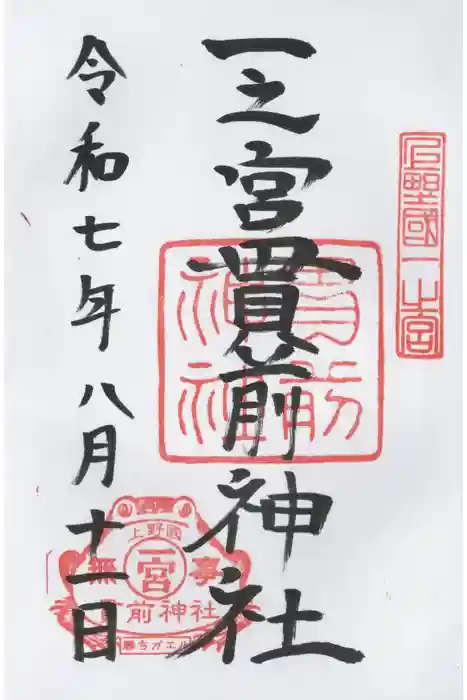 上野國一之宮
一之宮貫前神社
貫前神社
令和七年八月十一日
上野國
一宮
無事
貫前神社
勝ちガエル